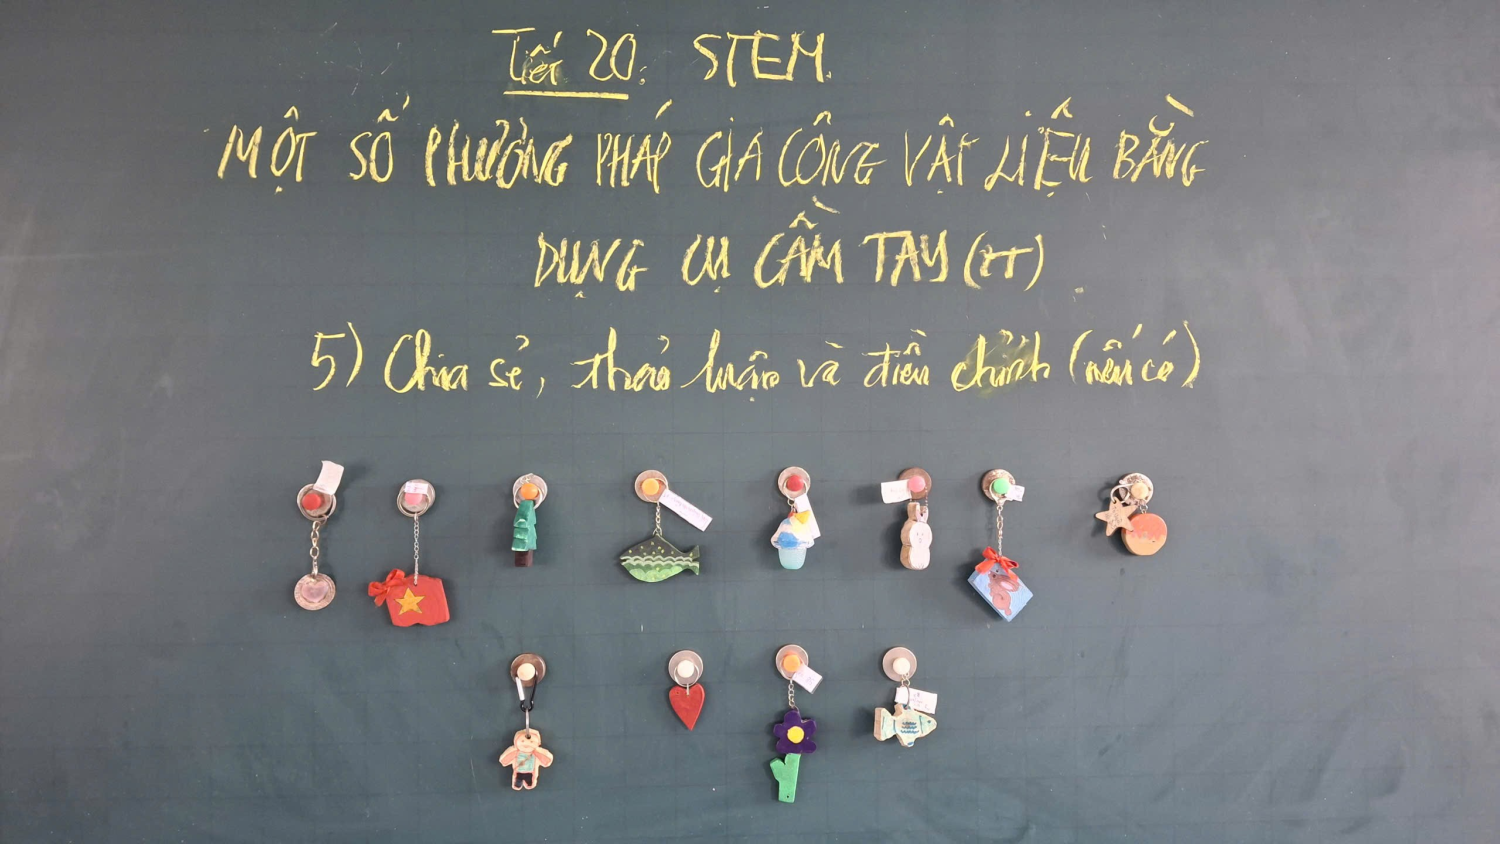 Tiết 20: STEM.
MỘT SỐ PHƯƠNG PHÁP GIA CÔNG VẬT LIỆU BẰNG
DỤNG CỤ CẦM TAY (tt)
5) Chia sẻ, thảo luận và điều chỉnh (nếu có)